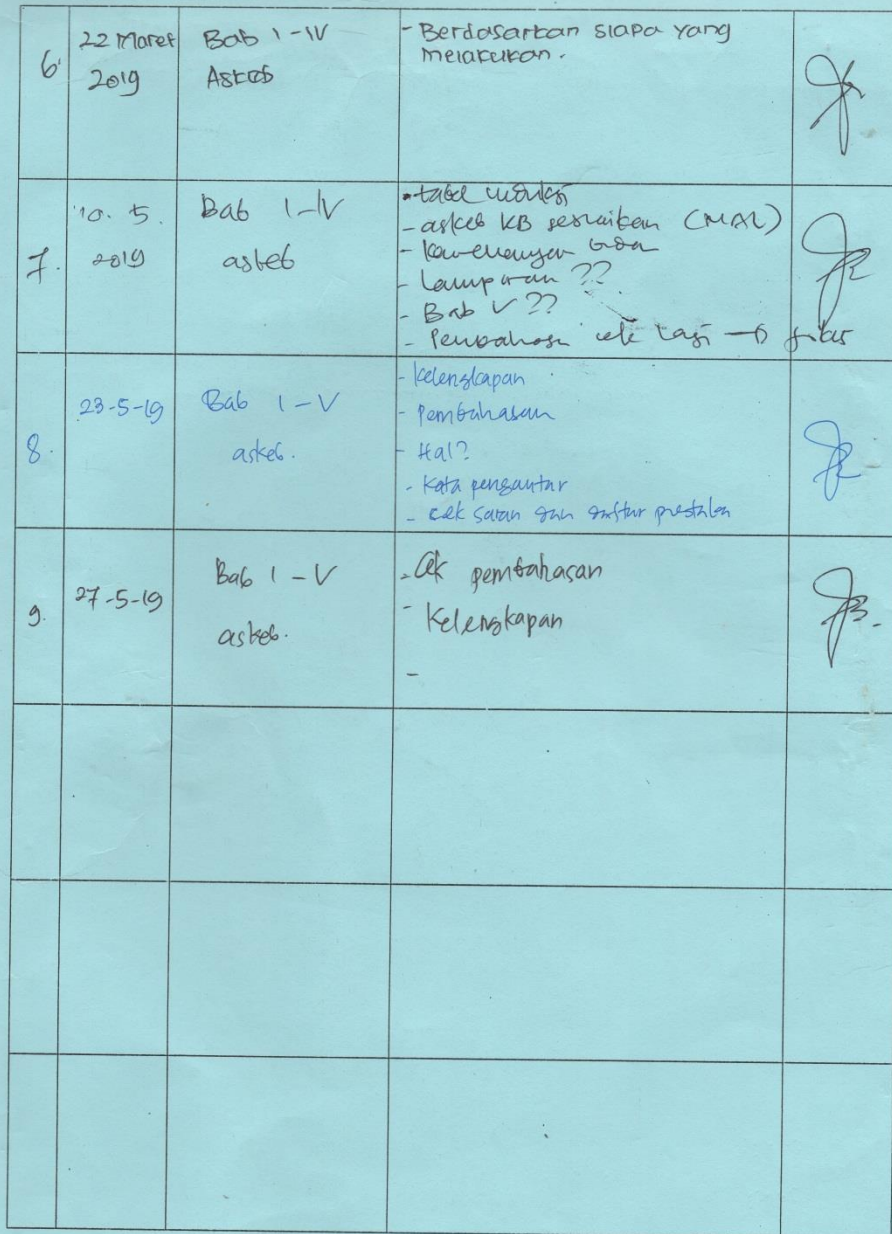 6.
22 Maret
2019
Bab I-IV
Askeb
- Berdasarkan siapa yang
melakukan.
7.
10. 5.
2019
Bab I-IV
askeb
- tabel
- askeb KB sesuaikan (MAL)
- kewenangan
- Lampiran ??
- Bab V ??
- Pembahasan cek lagi →
8.
23-5-19
Bab I-V
askeb.
- Kelengkapan
- Pembahasan
- Hal?
- Kata pengantar
- cek saran dan daftar pustaka
9.
27-5-19
Bab I-V
askeb.
- Cek pembahasan
- Kelengkapan
-